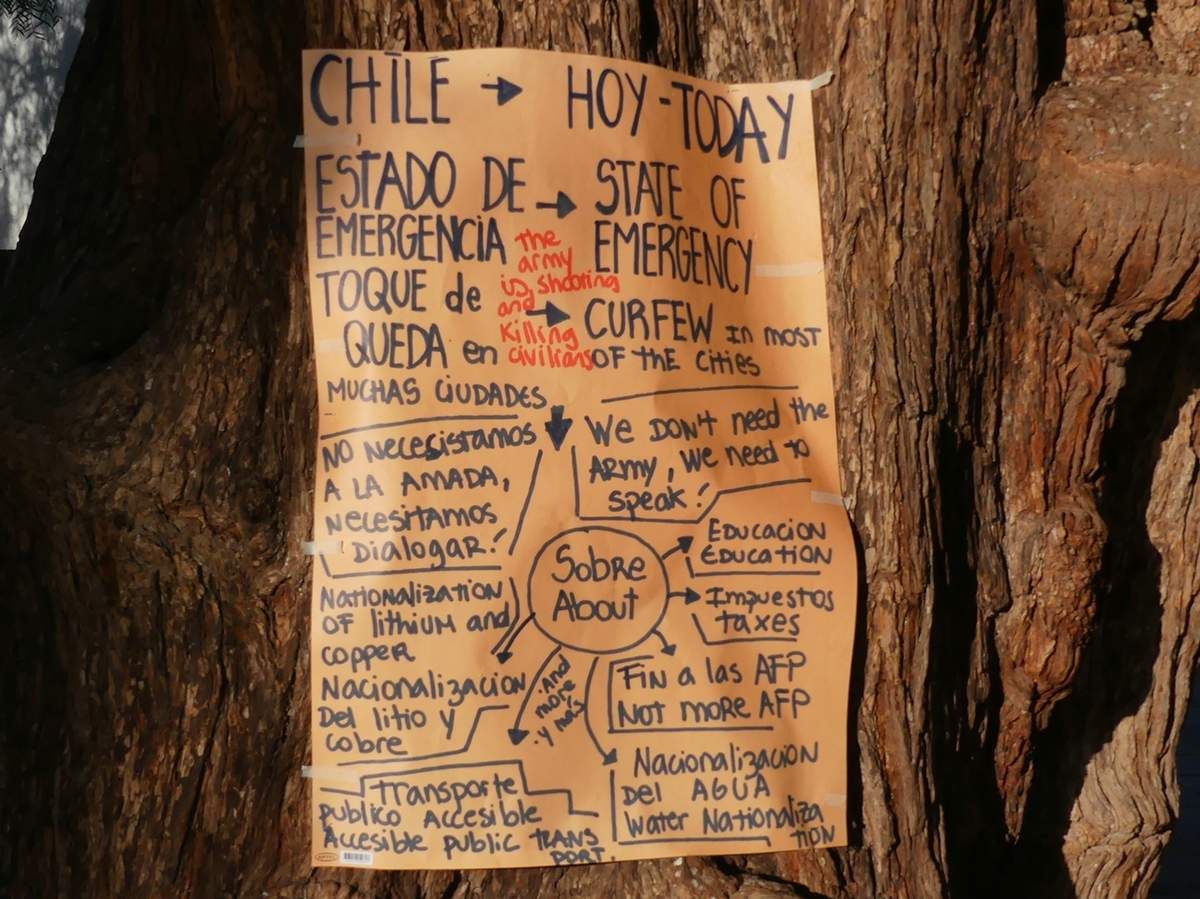 CHILE → HOY-TODAY
ESTADO DE → STATE OF
EMERGENCIA EMERGENCY
the
army
is shooting
and
killing
civilians
TOQUE de → CURFEW IN MOST
QUEDA en OF THE CITIES
MUCHAS CIUDADES
NO NECESISTAMOS
A LA AMADA,
NECESITAMOS
DIALOGAR!
We DON't need the
ARMY, We need to
speak!
Sobre
About
EDUCACION
EDUCATION
IMPUESTOS
taxes
FIN a las AFP
NOT more AFP
Nacionalización
Del AGUA
Water Nationaliza
TION
And
more
y más
Nationalization
OF lithium and
copper
Nacionalización
Del litio y
cobre
transporte
publico Accesible
Accesible public TRANS
PORT